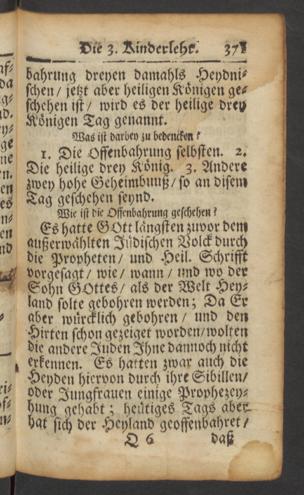 Die 3. Kinderlehr. 371
bahrung dreyen damahls Heydni-
schen / jetzt aber heiligen Königen ge-
schehen ist / wird es der heilige drey
Königen Tag genannt.
Was ist darbey zu bedencken?
1. Die Offenbahrung selbsten. 2.
Die heilige drey König. 3. Andere
zwey hohe Geheimbnuß / so an disem
Tag geschehen seynd.
Wie ist die Offenbahrung geschehen?
Es hatte GOtt längsten zuvor dem
außerwählten Jüdischen Volck durch
die Propheten / und Heil. Schrifft
vorgesagt / wie / wann / und wo der
Sohn GOttes / als der Welt Hey-
land solte gebohren werden; Da Er
aber würcklich gebohren / und den
Hirten schon gezeiget worden / wolten
die andere Juden Ihne dannoch nicht
erkennen. Es hatten zwar auch die
Heyden hiervon durch ihre Sibillen /
oder Jungfrauen einige Prophezey-
hung gehabt; heutiges Tags aber
hat sich der Heyland geoffenbahret /
Q 6 daß